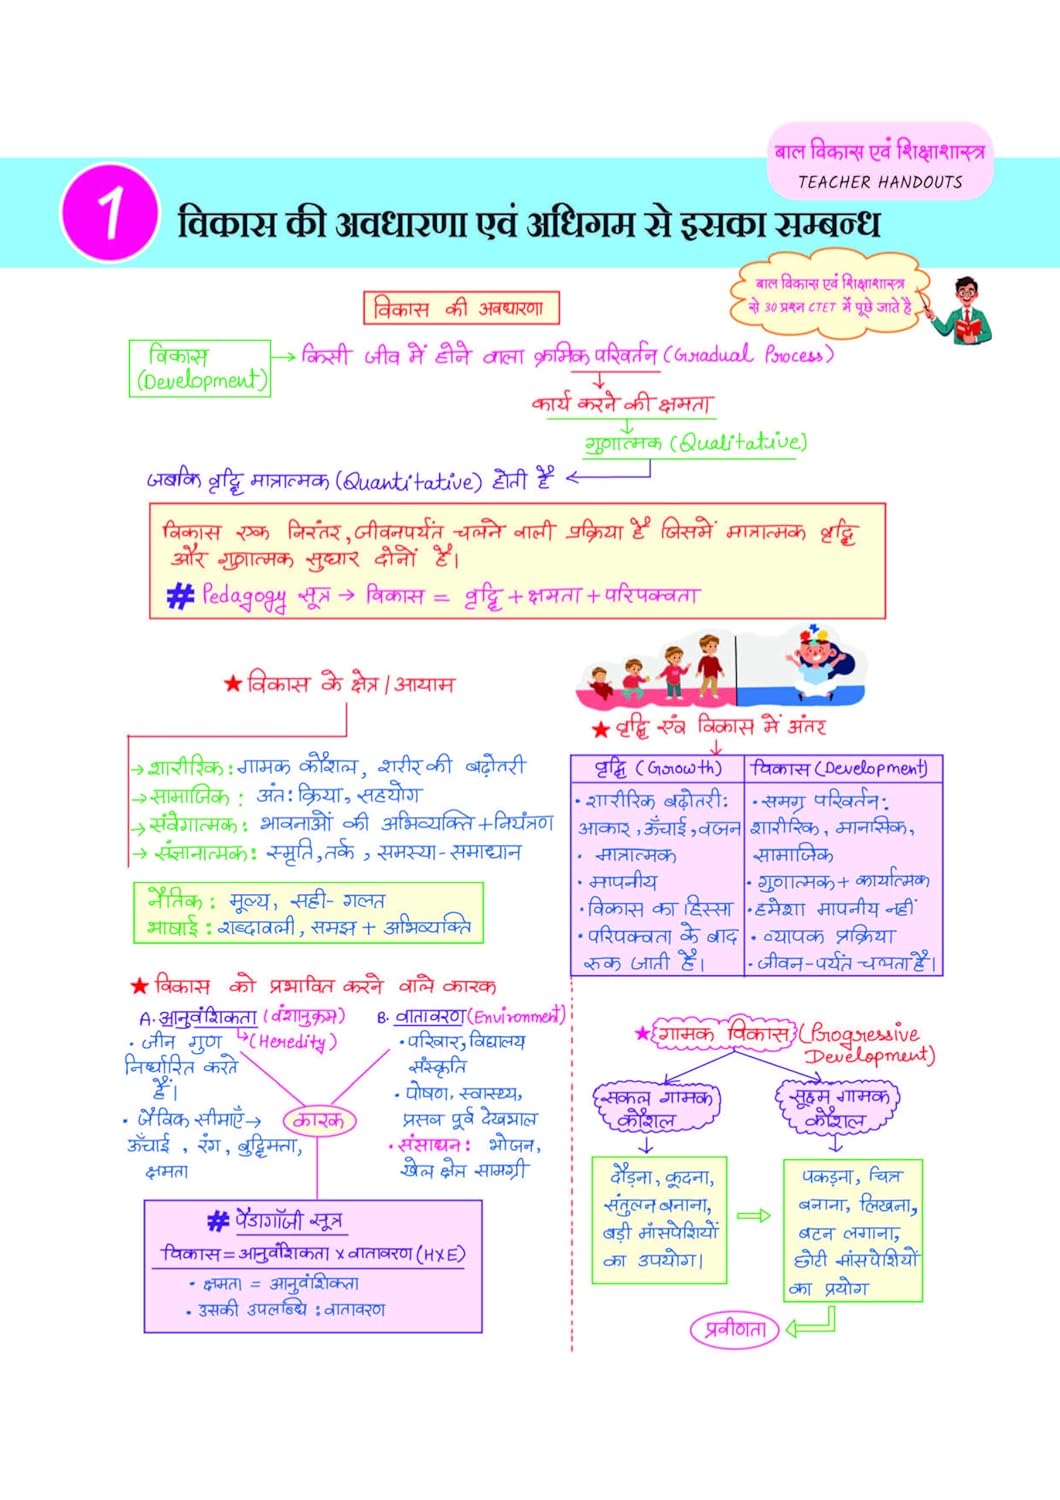 बाल विकास एवं शिक्षाशास्त्र
TEACHER HANDOUTS
1
विकास की अवधारणा एवं अधिगम से इसका सम्बन्ध
बाल विकास एवं शिक्षाशास्त्र
से 30 प्रश्न CTET में पूछे जाते है
विकास की अवधारणा
विकास
(Development)
किसी जीव में होने वाला क्रमिक परिवर्तन (Gradual Process)
कार्य करने की क्षमता
गुणात्मक (Qualitative)
जबकि वृद्धि मात्रात्मक (Quantitative) होती है
विकास एक निरंतर, जीवनपर्यंत चलने वाली प्रक्रिया है जिसमें मात्रात्मक वृद्धि
और गुणात्मक सुधार दोनों है।
# Pedagogy सूत्र → विकास = वृद्धि + क्षमता + परिपक्वता
★ विकास के क्षेत्र / आयाम
→ शारीरिक : गामक कौशल, शरीर की बढ़ोतरी
→ सामाजिक : अंत: क्रिया, सहयोग
→ संवेगात्मक : भावनाओं की अभिव्यक्ति + नियंत्रण
→ संज्ञानात्मक : स्मृति, तर्क, समस्या-समाधान
नैतिक : मूल्य, सही- गलत
भाषाई : शब्दावली, समझ + अभिव्यक्ति
★ वृद्धि एंव विकास में अंतर
वृद्धि (Growth)
• शारीरिक बढ़ोतरी:
आकार, ऊँचाई, वजन
• मात्रात्मक
• मापनीय
• विकास का हिस्सा
• परिपक्वता के बाद
रुक जाती है।
विकास (Development)
• समग्र परिवर्तन:
शारीरिक, मानसिक,
सामाजिक
• गुणात्मक + कार्यात्मक
• हमेशा मापनीय नहीं
• व्यापक प्रक्रिया
• जीवन-पर्यंत चलता है।
★ विकास को प्रभावित करने वाले कारक
A. आनुवंशिकता (वंशानुक्रम)
(Heredity)
• जीन गुण
निर्धारित करते
हैं।
• जैविक सीमाएँ →
ऊँचाई, रंग, बुद्धिमत्ता,
क्षमता
B. वातावरण (Environment)
• परिवार, विद्यालय
संस्कृति
• पोषण, स्वास्थ्य,
प्रसव पूर्व देखभाल
• संसाधन: भोजन,
खेल क्षेत्र सामग्री
कारक
# पेडागॉजी सूत्र
विकास = आनुवंशिकता x वातावरण (H×E)
• क्षमता = आनुवंशिकता
• उसकी उपलब्धि : वातावरण
★ गामक विकास (Progressive
Development)
सकल गामक
कौशल
दौड़ना, कूदना,
संतुलन बनाना,
बड़ी माँसपेशियों
का उपयोग।
सूक्ष्म गामक
कौशल
पकड़ना, चित्र
बनाना, लिखना,
बटन लगाना,
छोटी मांसपेशियों
का प्रयोग
प्रवीणता